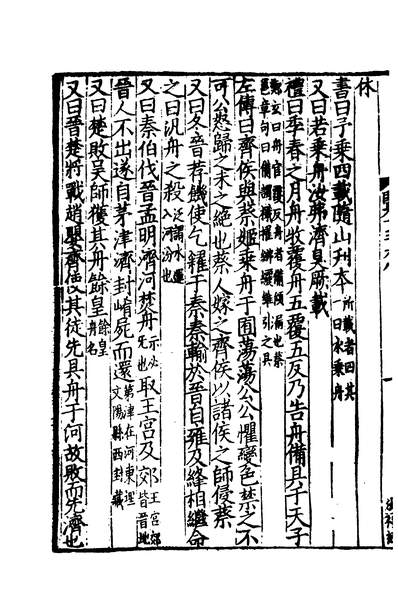 休
書曰予乗四載隨山刋木所載者四其一曰水乗舟
又曰若乗舟汝弗濟臭厥載
禮曰季春之月舟牧覆舟五覆五反乃告舟備具于天子
鄭玄曰舟官覆反舟者備傾漏也蔡邕章句曰
左傳曰齊侯與蔡姬乗舟于囿蕩公公懼變色禁之不
可公怒歸之未之絶也蔡人嫁之齊侯以諸侯之師侵蔡
又曰冬晉荐饑使乞糴于秦秦輸於晉自雍及絳相繼命
之曰汎舟之役入河汾也
又曰秦伯伐晉孟明濟河焚舟示必死也取王宫及郊王宫郊皆晉地
晉人不出遂自茅津濟封崤屍而還茅津在河東
又曰楚敗吴師獲其舟餘皇餘皇舟名
又曰晉楚將戰趙嬰齊使其徒先具舟于河故敗而先濟也